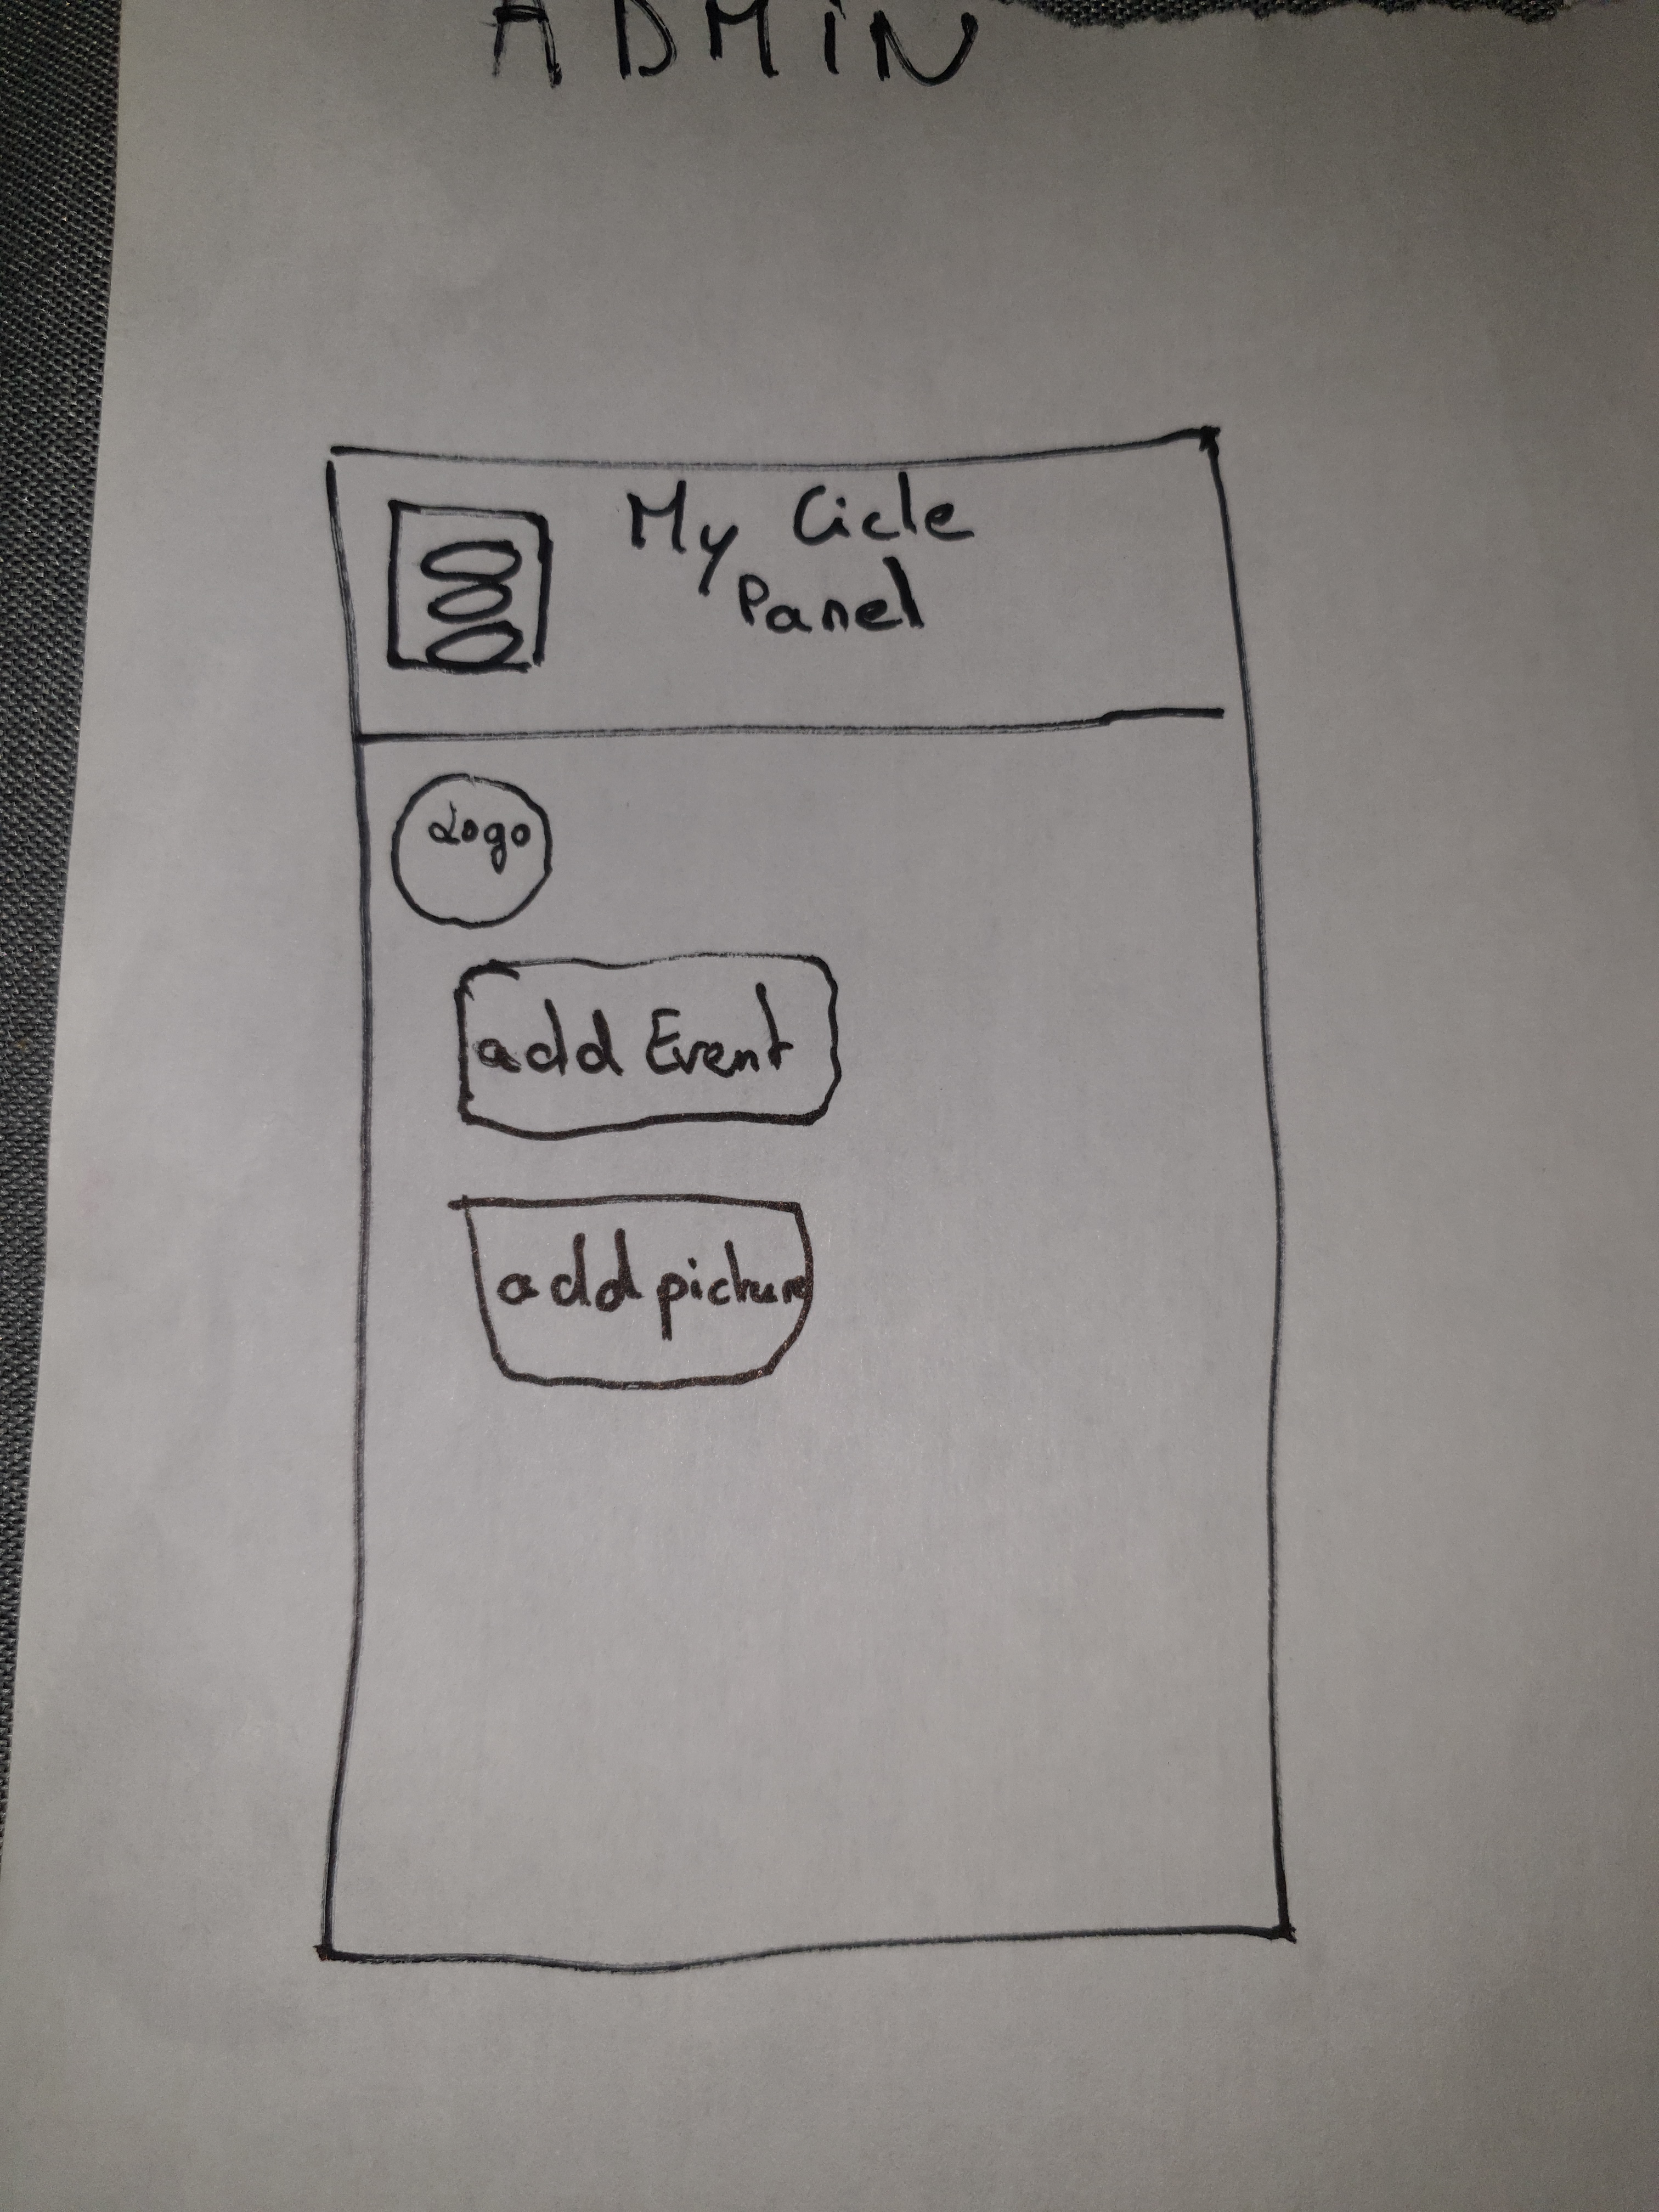 ADMiN
My Cicle
Panel
Logo
add Event
add picture